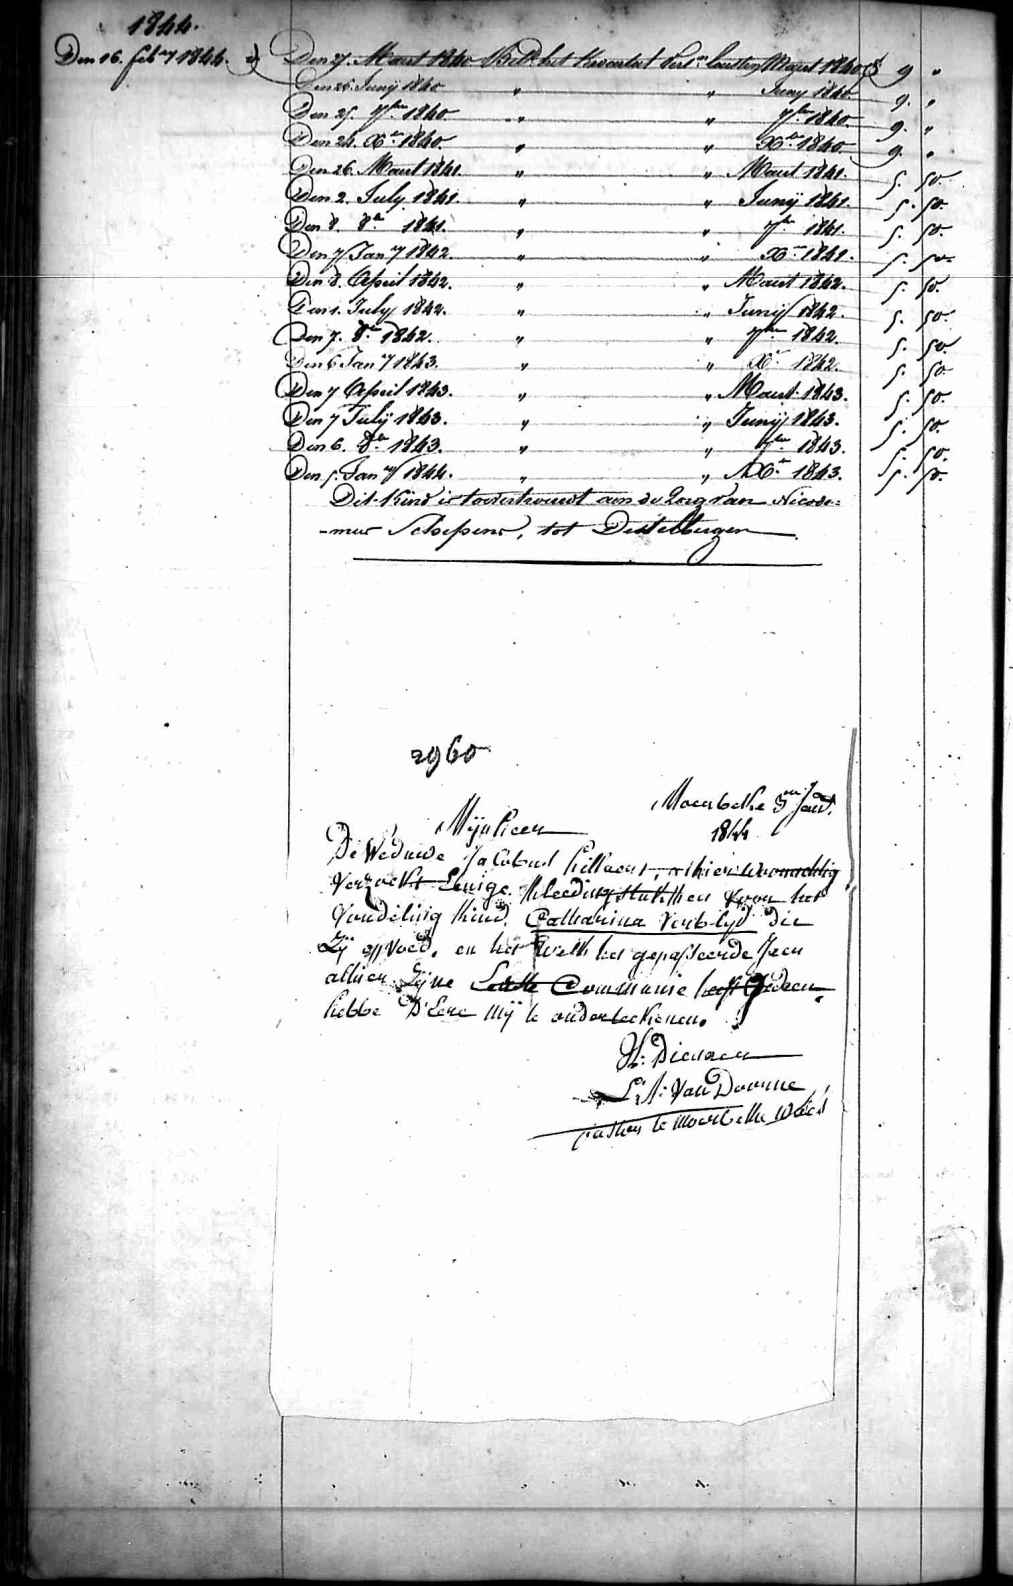 1844.
Den 16. feb.ry 1844.
Den 27. Maart 1840 Bet. het kwartal laatsten Maart 1840 9 "
Den 26. Junij 1840 " " Juny 1840 9. "
Den 25. 7ber 1840 " " 7ber 1840 9. "
Den 24. Xber 1840 " " Xber 1840 9. "
Den 26. Maart 1841. " " Maart 1841. 5. 50.
Den 2. July 1841. " " Junij 1841. 5. 50.
Den 8. 8br 1841. " " 7br 1841. 5. 50.
Den 7 Jan.ry 1842. " " Xbr 1841. 5. 50.
Den 8. April 1842. " " Maart 1842. 5. 50.
Den 1. July 1842. " " Junij 1842. 5. 50.
Den 7. 8br 1842. " " 7br 1842. 5. 50.
Den 6 Jan.ry 1843. " " Xbr 1842. 5. 50
Den 7 April 1843. " " Maart 1843. 5. 50.
Den 7 July 1843. " " Junij 1843. 5. 50.
Den 6. 8br 1843. " " 7br 1843. 5. 50.
Den 5. Jan.ry 1844. " " Xbr 1843. 5. 50.
Dit kind is toevertrouwt aan de Zorg van Nicode=
-mus Schepens, tot Destelbergen.
2960
Moerbeke 3en Jan.
1844
Mijnheer
De Weduwe Jacobus hier woonachtig
Verzoekt Eenige kleeding stukken voor het
Vondeling kind. Catharina Verblijd die
Zij op voed, en het welk het gepasseerde Jeer
alhier Zijne Eerste Communie heeft gedeen
hebbe D'Eere Mij te onderteekenen.
Uw: Dienaer
Van Doorne
pastor te Moerbeke Waes